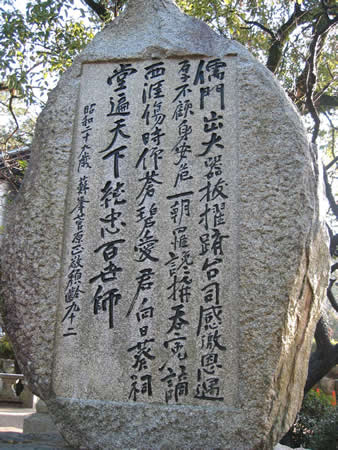 儒門出大器拔擢躋台司感激恩遇
厚不顧身安危一朝罹讒構呑冤謫
西涯傷時仰蒼碧愛君向日葵祠
堂遍天下純忠百世師
昭和二十九歳 蘇峯菅原正敬頽齢九十二